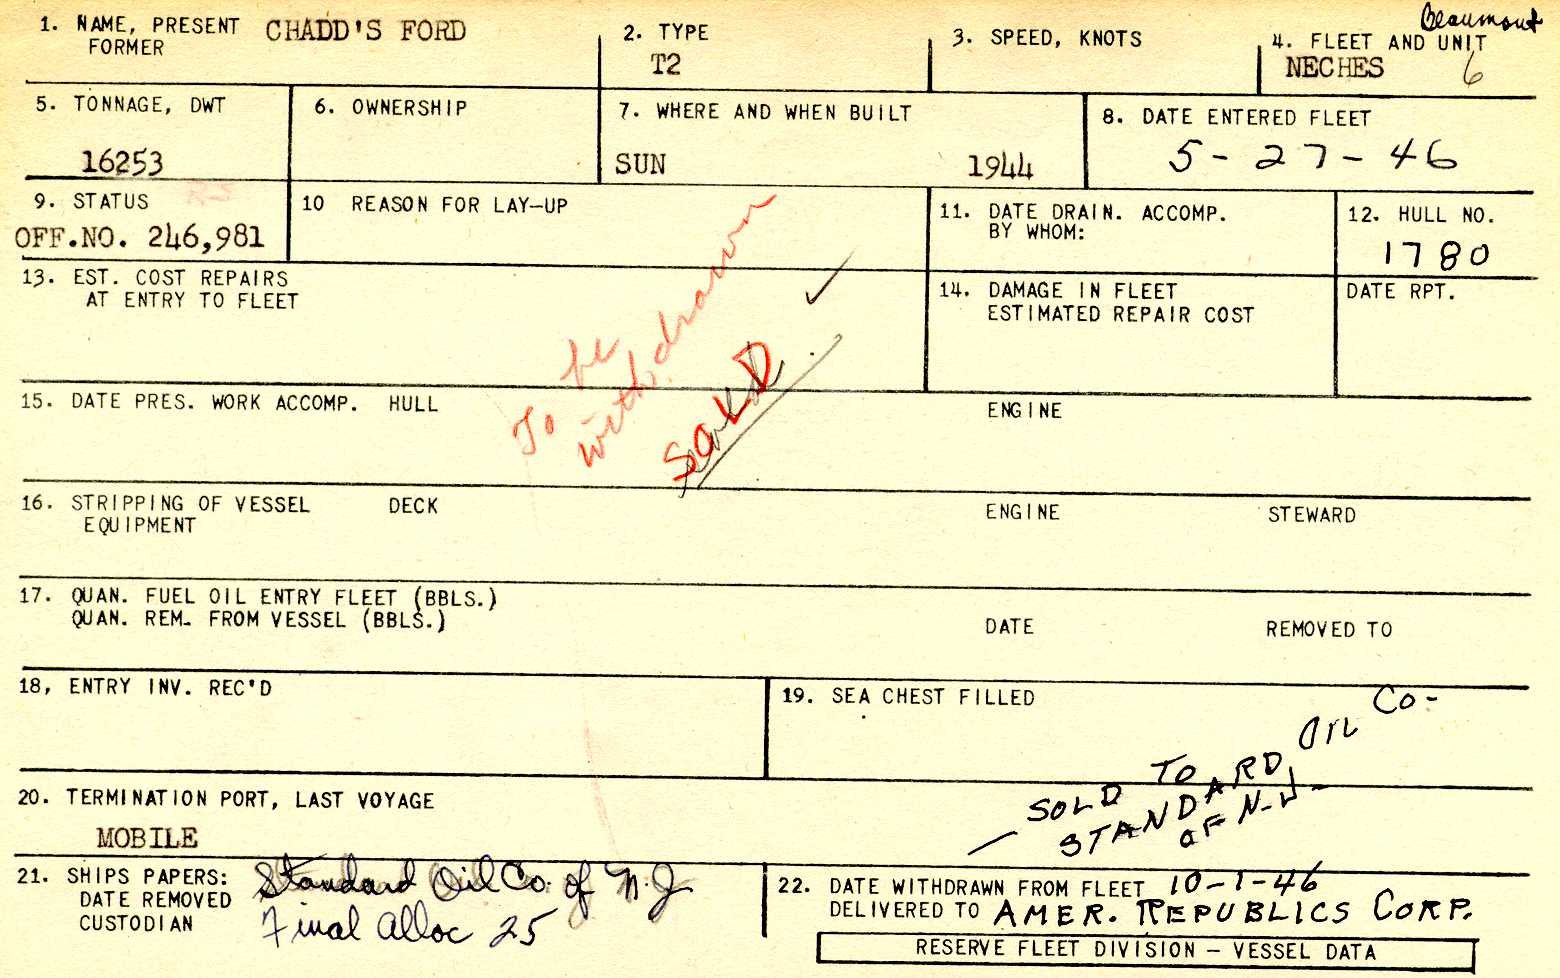 Beaumont
1. NAME, PRESENT CHADD'S FORD
FORMER
2. TYPE
T2
3. SPEED, KNOTS
4. FLEET AND UNIT
NECHES 6
5. TONNAGE, DWT
16253
6. OWNERSHIP
7. WHERE AND WHEN BUILT
SUN 1944
8. DATE ENTERED FLEET
5-27-46
9. STATUS RS
OFF.NO. 246,981
10 REASON FOR LAY-UP
11. DATE DRAIN. ACCOMP.
BY WHOM:
12. HULL NO.
1780
13. EST. COST REPAIRS
AT ENTRY TO FLEET
To be
withdrawn
SOLD
14. DAMAGE IN FLEET
ESTIMATED REPAIR COST
DATE RPT.
15. DATE PRES. WORK ACCOMP. HULL ENGINE
16. STRIPPING OF VESSEL DECK ENGINE STEWARD
EQUIPMENT
17. QUAN. FUEL OIL ENTRY FLEET (BBLS.)
QUAN. REM. FROM VESSEL (BBLS.) DATE REMOVED TO
18, ENTRY INV. REC'D
19. SEA CHEST FILLED
20. TERMINATION PORT, LAST VOYAGE
MOBILE
— SOLD TO
STANDARD OIL CO-
OF N-J-
21. SHIPS PAPERS:
DATE REMOVED
CUSTODIAN
Standard Oil Co. of N.J
Final Alloc 25
22. DATE WITHDRAWN FROM FLEET 10-1-46
DELIVERED TO AMER. REPUBLICS CORP.
RESERVE FLEET DIVISION – VESSEL DATA